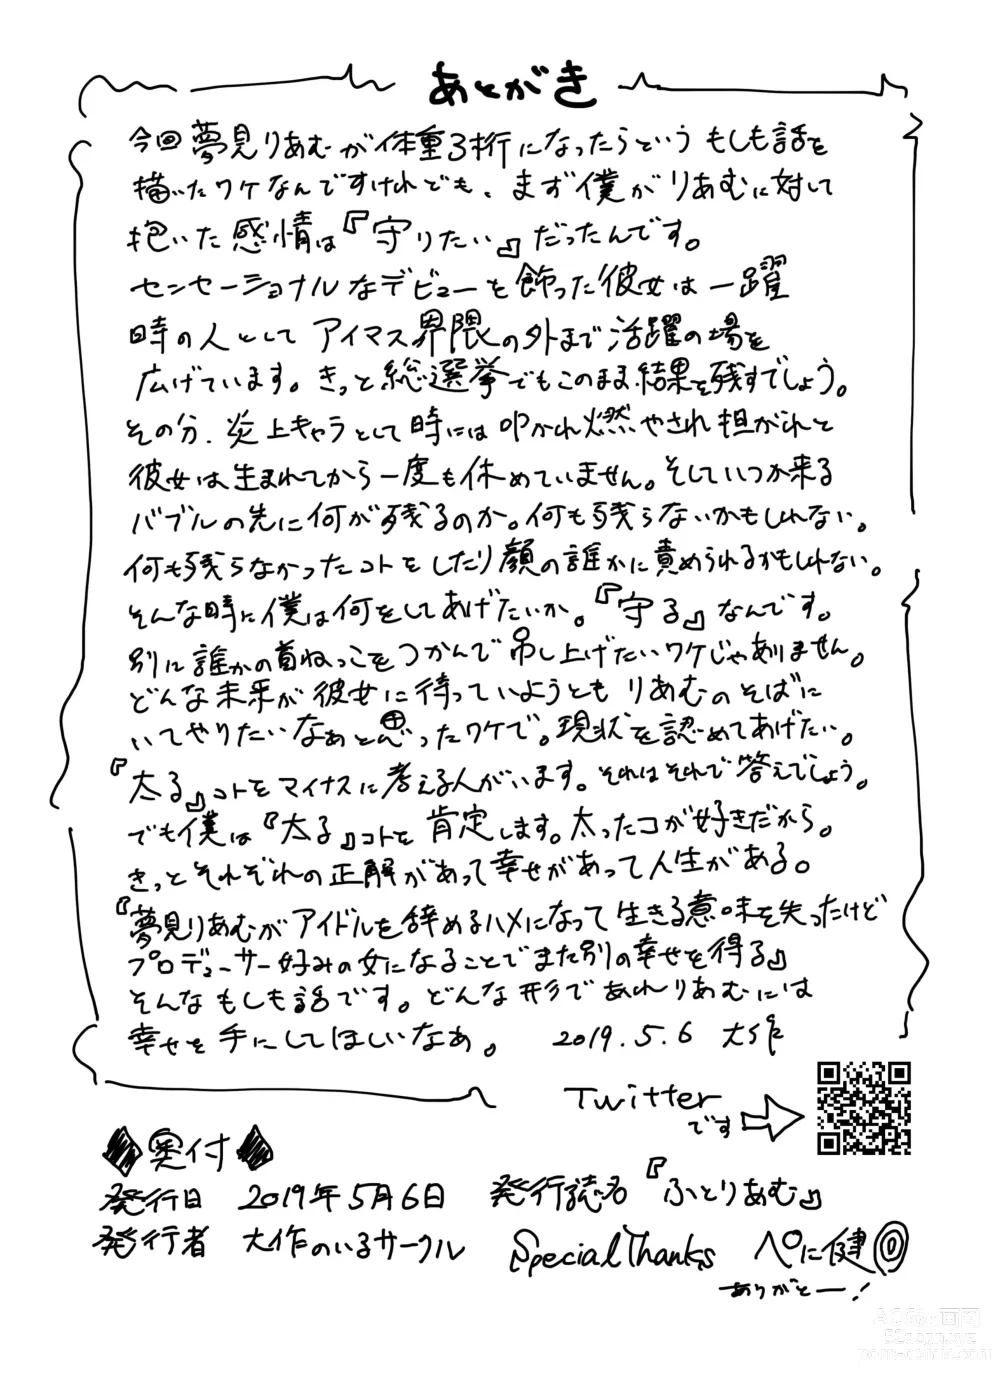 あとがき
今回夢見りあむが体重3桁になったらという もしも話を
描いたワケなんですけれども、まず僕がりあむに対して
抱いた感情は『守りたい』だったんです。
センセーショナルなデビューを飾った彼女は一躍
時の人として アイマス界隈の外まで活躍の場を
広げています。きっと総選挙でもこのまま結果を残すでしょう。
その分、炎上キャラとして時には叩かれ燃やされ担がれと
彼女は生まれてから一度も休めていません。そしていつか来る
バブルの先に何が残るのか。何も残らないかもしれない。
何も残らなかったコトをしたり顔の誰かに責められるかもしれない。
そんな時に僕は何をしてあげたいか。『守る』なんです。
別に誰かの首ねっこをつかんで吊し上げたいワケじゃありません。
どんな未来が彼女に待っていようともりあむのそばに
いてやりたいなぁと思ったワケで。現状を認めてあげたい。
『太る』コトをマイナスに考える人がいます。それはそれで答えでしょう。
でも僕は『太る』コトを肯定します。太ったコが好きだから。
きっとそれぞれの正解があって幸せがあって人生がある。
『夢見りあむがアイドルを辞めるハメになって生きる意味を失ったけど
プロデューサー好みの女になることでまた別の幸せを得る』
そんなもしも話です。どんな形であれりあむには
幸せを手にしてほしいなあ。 2019.5.6 大作
Twitter
です
◆奥付◆
発行日 2019年5月6日 発行誌名『ふとりあむ』
発行者 大作のいるサークル Special Thanks ぺに健
ありがとー!